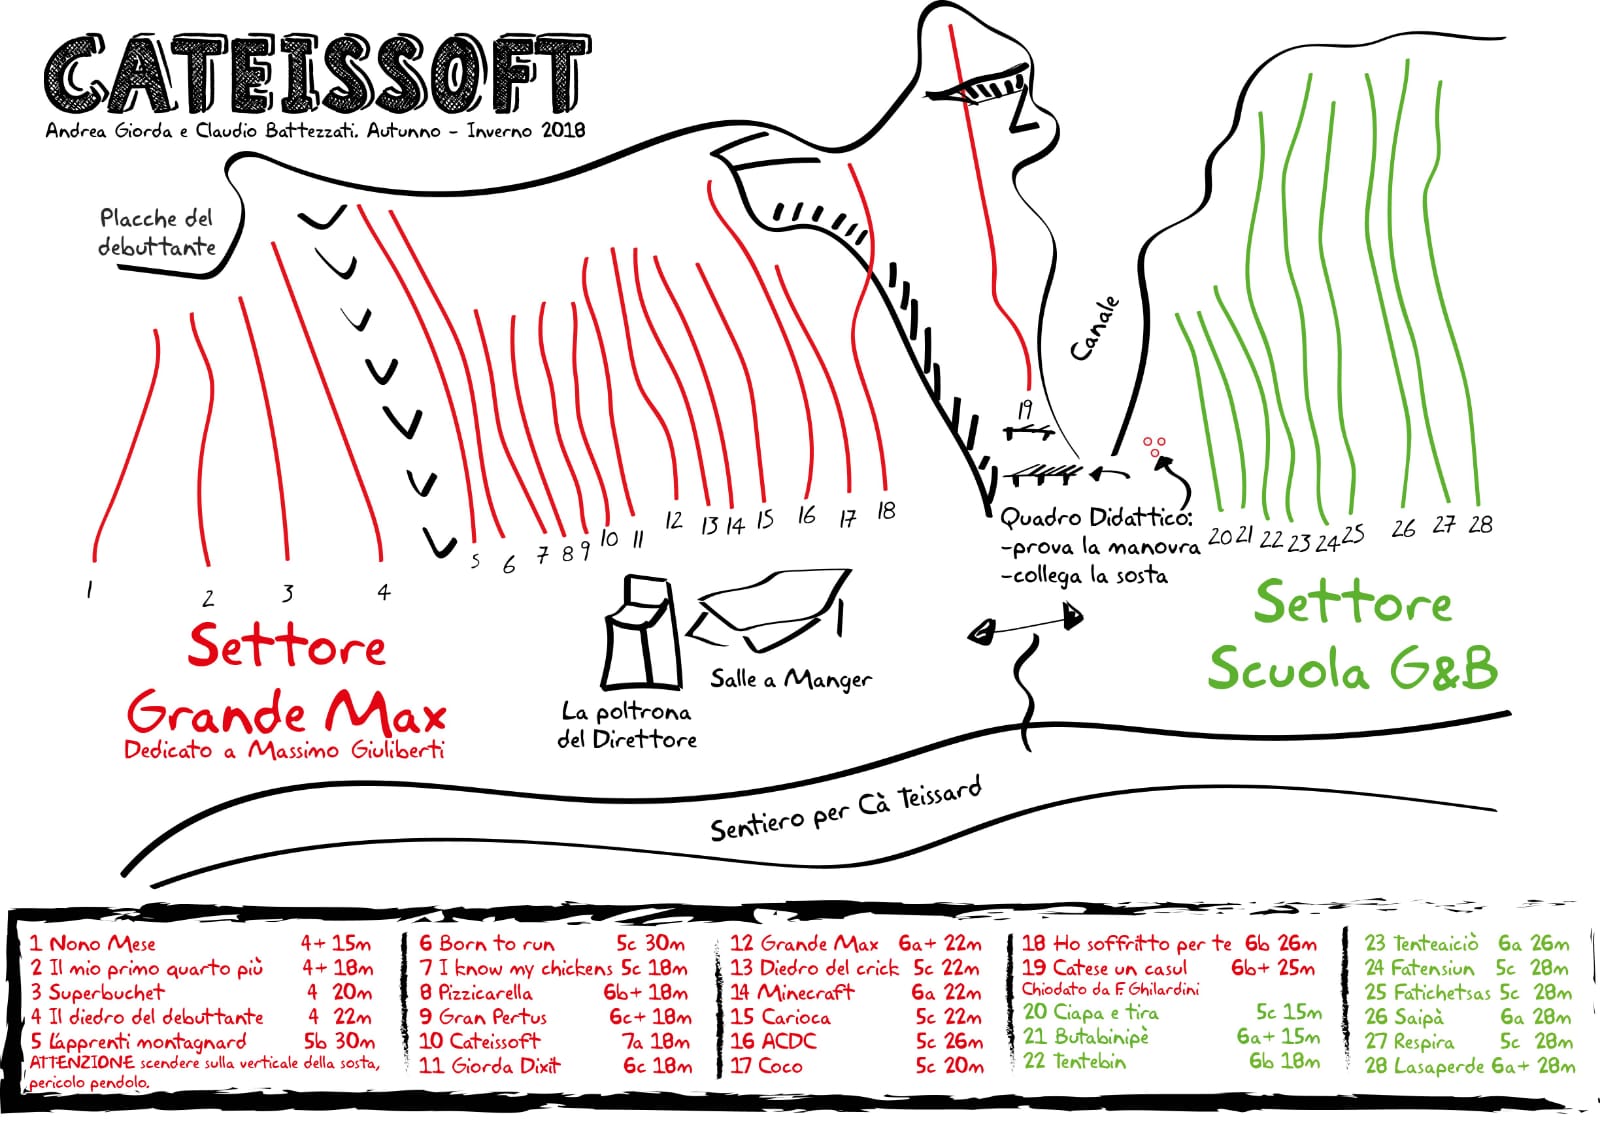 CATEISSOFT
Andrea Giorda e Claudio Battezzati. Autunno - Inverno 2018
Placche del
debuttante
Canale
1 2 3 4 5 6 7 8 9 10 11 12 13 14 15 16 17 18
19
Quadro Didattico:
-prova la manovra
-collega la sosta
20 21 22 23 24 25 26 27 28
Settore
Grande Max
Dedicato a Massimo Giuliberti
Settore
Scuola G&B
La poltrona
del Direttore
Salle a Manger
Sentiero per Cà Teissard
1 Nono Mese 4+ 15m
2 Il mio primo quarto più 4+ 18m
3 Superbuchet 4 20m
4 Il diedro del debuttante 4 22m
5 L'apprenti montagnard 5b 30m
ATTENZIONE scendere sulla verticale della sosta,
pericolo pendolo.
6 Born to run 5c 30m
7 I know my chickens 5c 18m
8 Pizzicarella 6b+ 18m
9 Gran Pertus 6c+ 18m
10 Cateissoft 7a 18m
11 Giorda Dixit 6c 18m
12 Grande Max 6a+ 22m
13 Diedro del crick 5c 22m
14 Minecraft 6a 22m
15 Carioca 5c 22m
16 ACDC 5c 26m
17 Coco 5c 20m
18 Ho soffritto per te 6b 26m
19 Catese un casul 6b+ 25m
Chiodato da F. Ghilardini
20 Ciapa e tira 5c 15m
21 Butabinipè 6a+ 15m
22 Tentebin 6b 18m
23 Tenteaiciò 6a 26m
24 Fatensiun 5c 28m
25 Fatichetsas 5c 28m
26 Saipà 6a 28m
27 Respira 5c 28m
28 Lasaperde 6a+ 28m